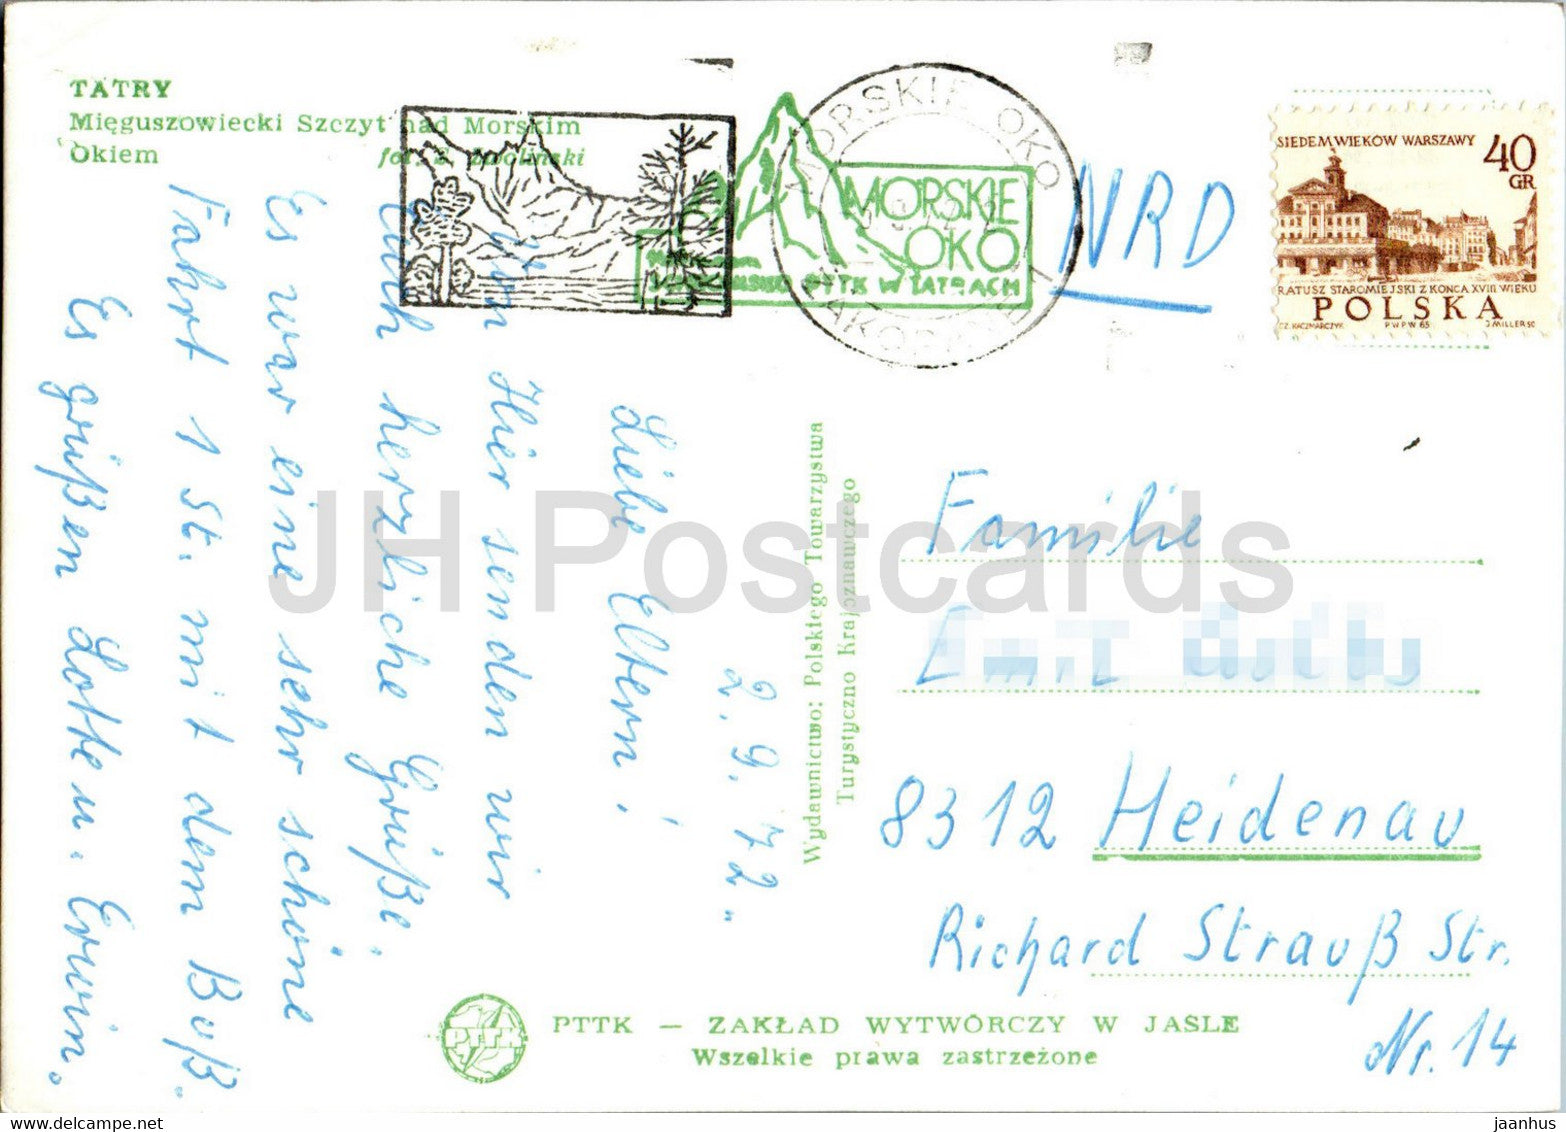 TATRY
Mięguszowiecki Szczyt nad Morskim
Okiem
fot. Z. Zwoliński
MORSKIE OKO
MORSKIE
OKO
PTTK W TATRACH
NRD
SIEDEM WIEKÓW WARSZAWY
40
GR
RATUSZ STAROMIEJSKI Z KONCA XVIII WIEKU
POLSKA
CZ. KACZMARCZYK PWPW 65 J. MILLER SC
2. 9. 72.
Liebe Eltern!
Von Hier senden wir
Euch herzliche Grüße.
Es war eine sehr schöne
Fahrt 1 St. mit dem Buß.
Es grüßen Lotte u. Erwin.
Wydawnictwo: Polskiego Towarzystwa
Turystyczno Krajoznawczego
Familie
8312 Heidenau
Richard Strauß Str.
Nr. 14
PTTK
PTTK — ZAKŁAD WYTWÓRCZY W JAŚLE
Wszelkie prawa zastrzeżone
JH Postcards
www.delcampe.net
jaanhus_EUR